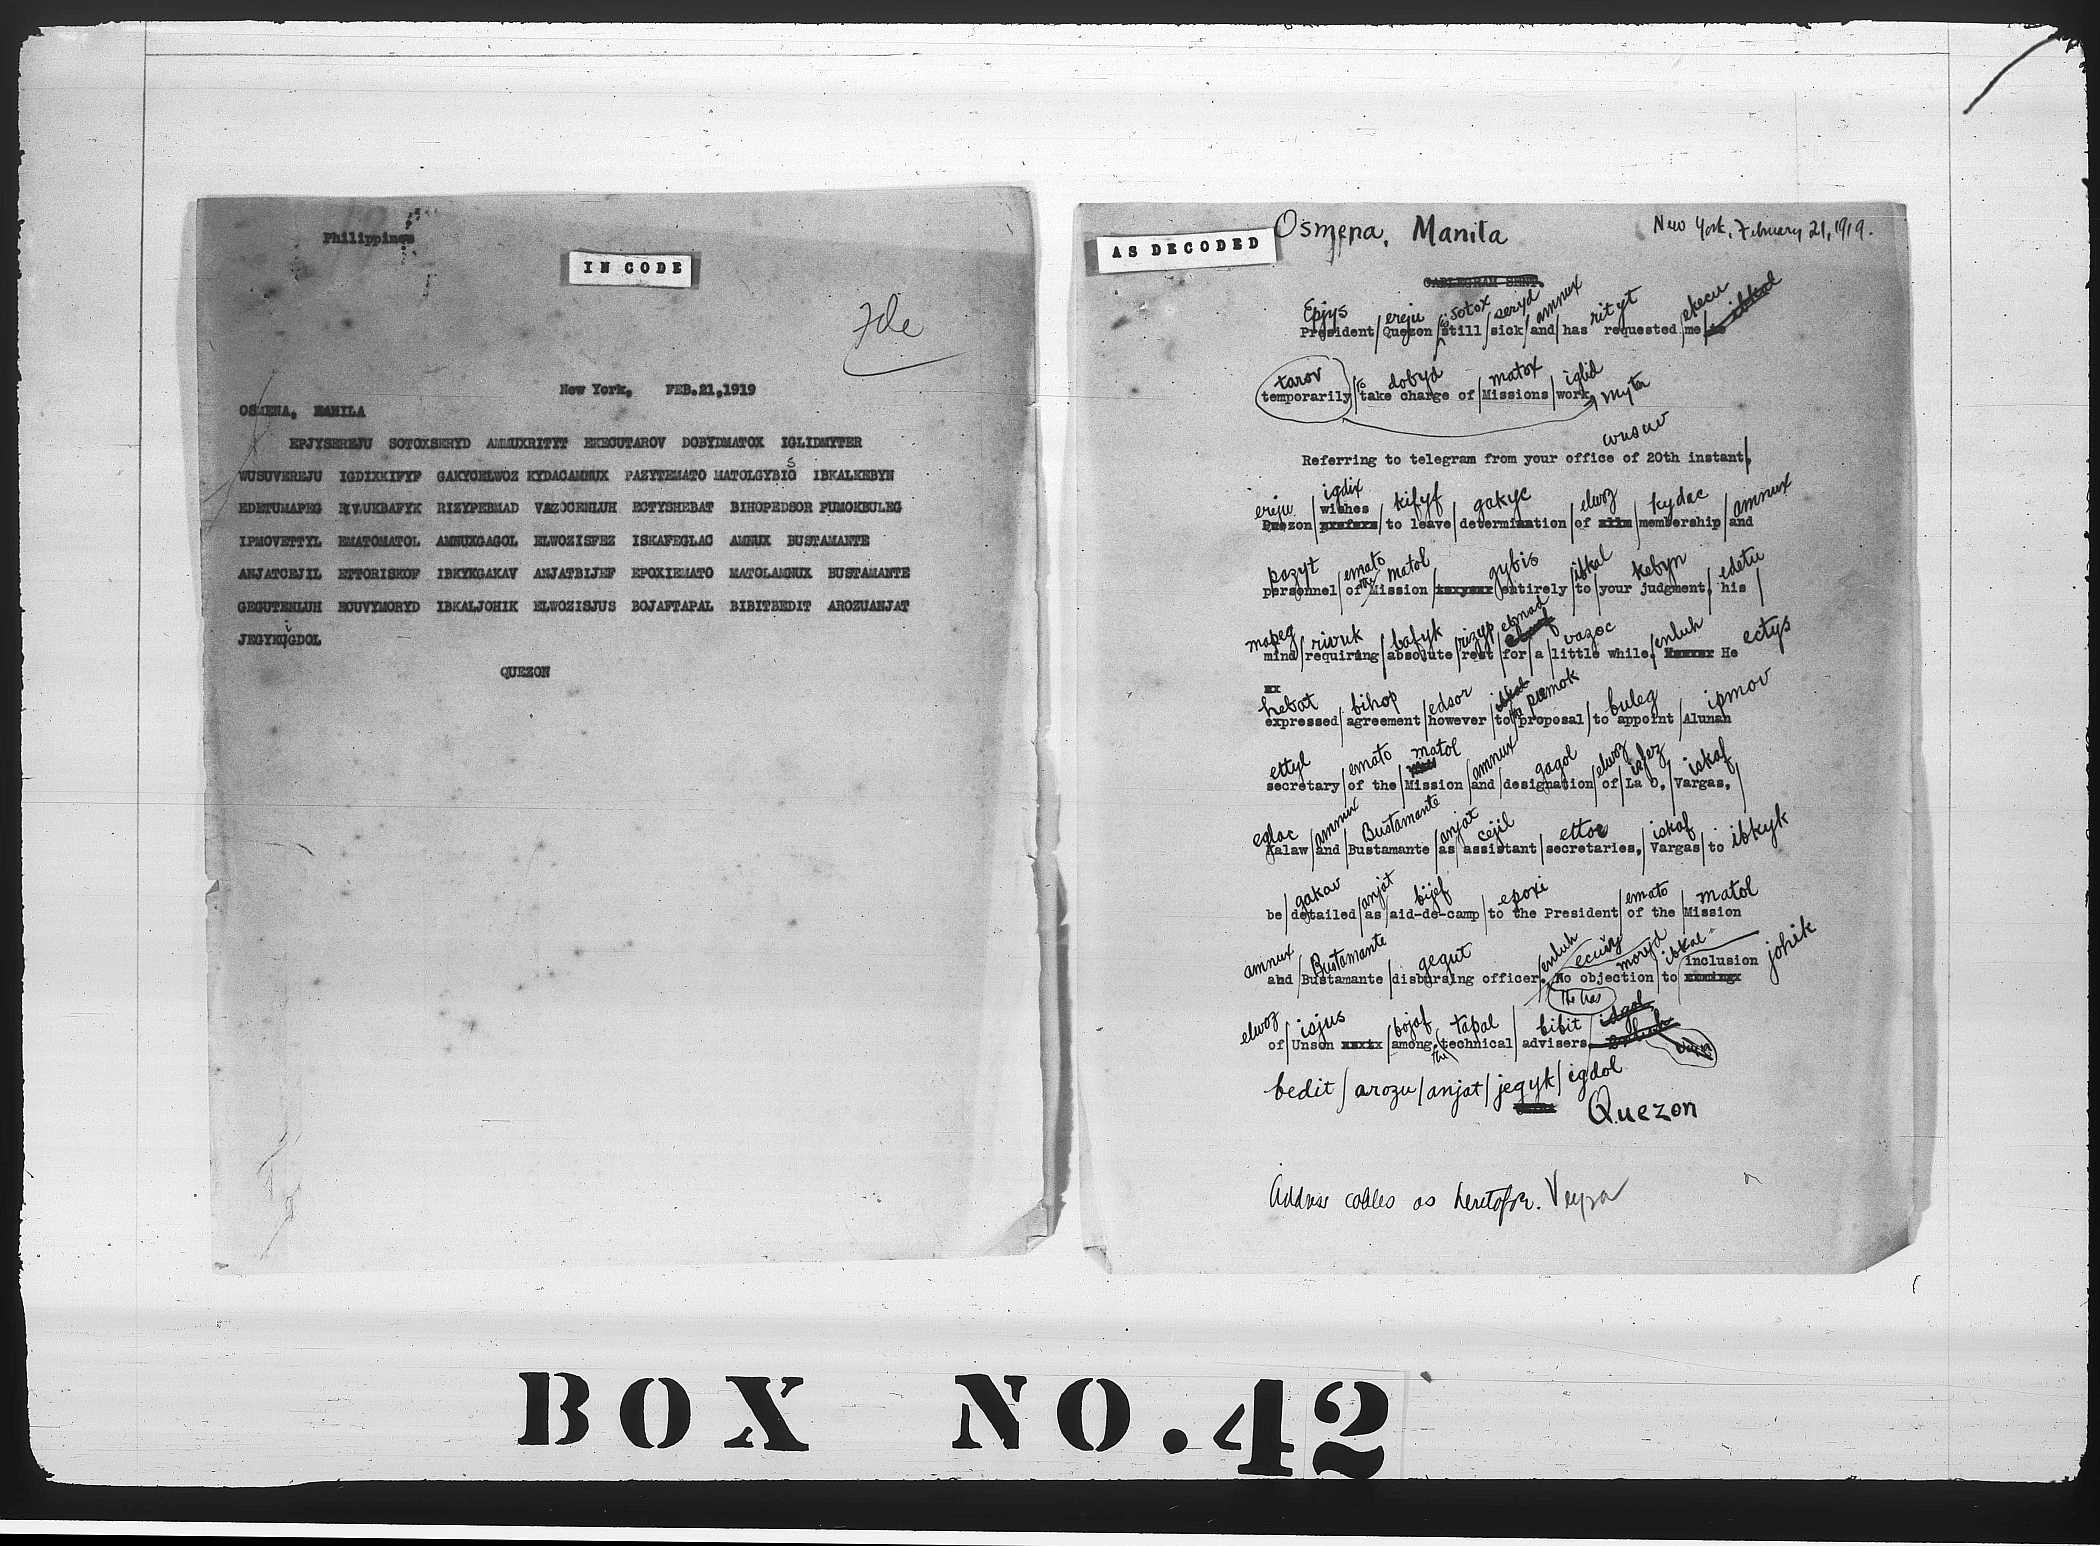 Philippines
IN CODE
File
New York, FEB.21,1919
OSMENA, MANILA
EPJYSEREJU SOTOXSERYD AMNUXRITYT EKECUTAROV DOBYDMATOX IGLIDMYTER
WUSUVEREJU IGDIXKIFYF GAKYCELWOZ KYDACAMNUX PAZYTEMATO MATOLGYBIGS IBKALKEBYN
EDETUMAPEG RIVUKBAFYK RIZYPEBMAD VAZOCENLUH ECTYSHEBAT BIHOPEDSOR PUMOKBULEG
IPMOVETTYL EMATOMATOL AMNUXGAGOL ELWOZISFEZ ISKAFEGLAC AMNUX BUSTAMANTE
ANJATCEJIL ETTORISKOF IBKYKGAKAV ANJATBIJEF EPOXIEMATO MATOLAMNUX BUSTAMANTE
GEGUTENLUH ECUVYMORYD IBKALJOHIK ELWOZISJUS BOJAFTAPAL BIBITBEDIT AROZUANJAT
JEGYKIGDOL
QUEZON
AS DECODED
Osmena, Manila
New York, February 21, 1919.
CABLEGRAM SENT.
Epjys ereju sotox seryd amnux rityt ekecu ibkal
President/Quezon/is still/sick/and/has requested/me/
tarov dobyd matox iglid myter
temporarily/to take charge of/Missions/work,
wusuv
Referring to telegram from your office of 20th instant,
ereju igdix kifyf gakyc elwoz kydac amnux
Quezon/wishes/to leave/determination/of/membership/and
pazyt emato matol gybis ibkal kebyn edetu
personnel/of the Mission/entirely/to/your judgment,/his/
mapeg rivuk bafyk rizyp ebmad vazoc enluh ectys
mind/requiring/absolute/rest/for/a/little while./He
xx
hebat bihop edsor ibkal pumok buleg ipmov
expressed/agreement/however/to/proposal/to appoint/Alunan
ettyl emato matol amnux gagol elwoz isfez iskaf
secretary/of the/Mission/and/designation/of/La O,/Vargas,/
eglac amnux Bustamante anjat cejil ettor iskaf ibkyk
Kalaw/and/Bustamante/as/assistant/secretaries,/Vargas/to
gakav anjat bijef epoxi emato matol
be/detailed/as/aid-de-camp/to the President/of the/Mission
amnux Bustamante gegut enluh ecuvy moryd ibkal johik
and/Bustamante/disbursing officer./No objection/to/inclusion
He has
elwoz isjus bojaf tapal bibit igdol
of/Unson/among the/technical/advisers.
bedit/arozu/anjat/jegyk/igdol
Quezon
Address cables as heretofor. Veyra
BOX NO.42